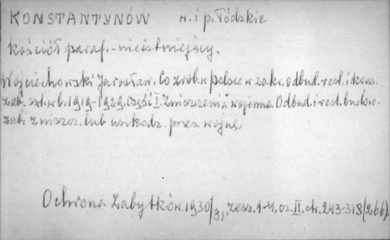 KONSTANTYNÓW w. i p. Łódzkie
kościół paraf. - nieistniejący.
Wojciechowski Jarosław. Co zrob. w Polsce w zakr. odbud. rest. i kons.
zab. szt. w l. 1919-1929. Część I. Zniszczenia wojenne. Odbud. i rest. budow.
zab. zniszcz. lub uszkodz. przez wojnę.
Ochrona Zabytków 1930/31, zesz. 1-4, cz. II. str. 243-318 (266).